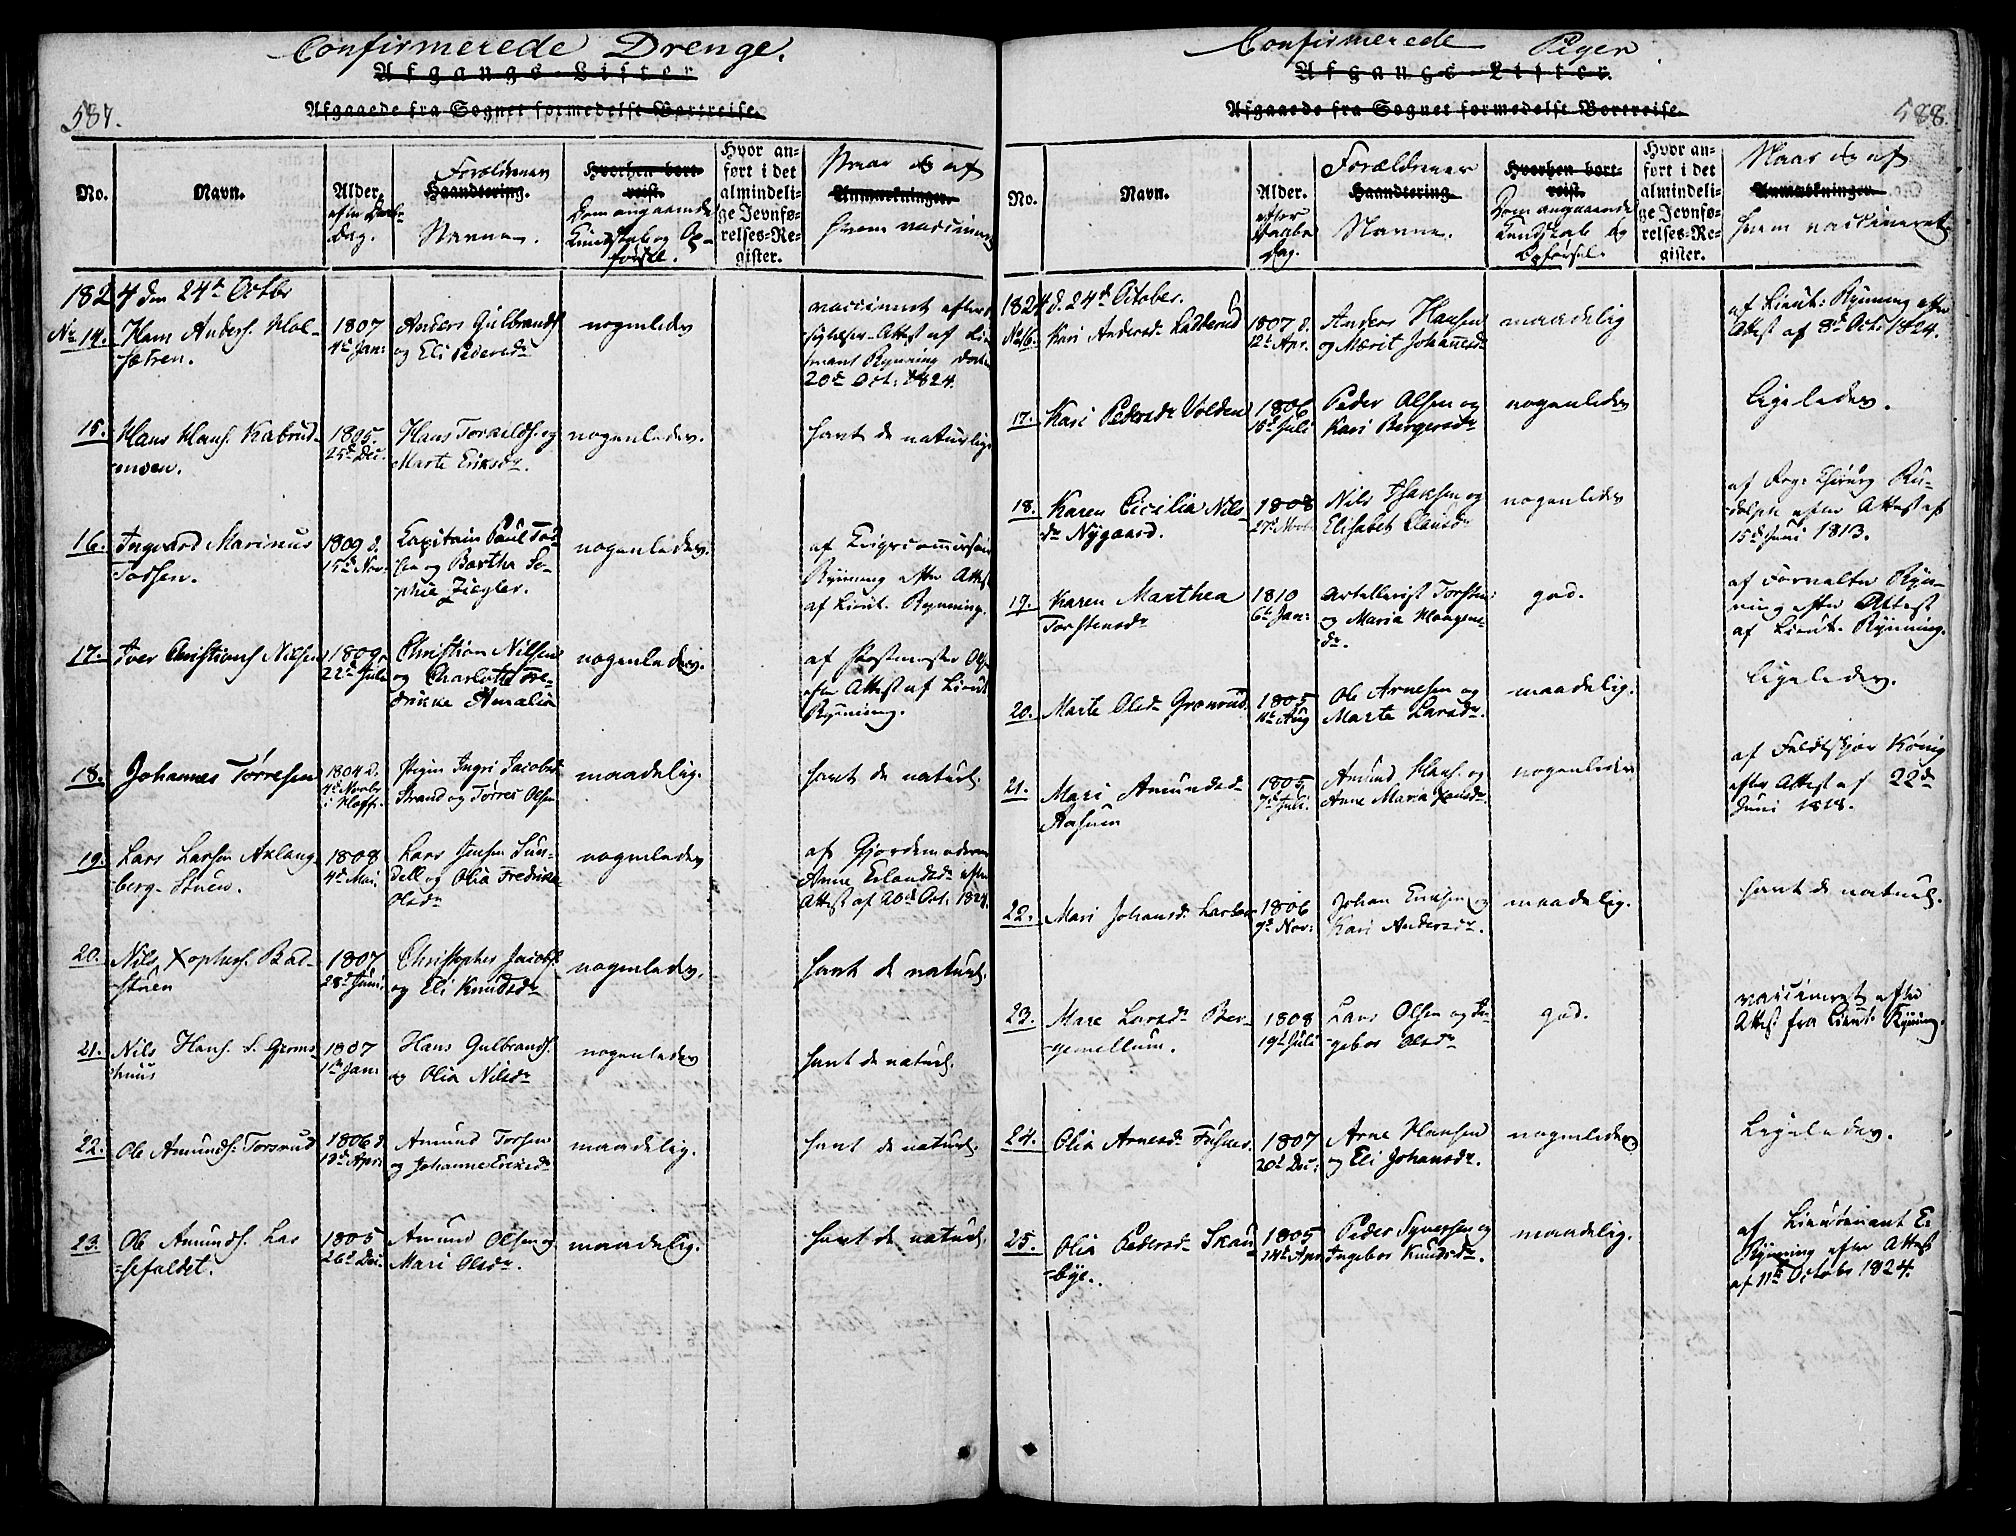 Confirmerede Drenge.
Afgangs-Lister
Afgaaede fra Sognet formedelst Bortreise.
587.
No.
Navn.
Alder.
Dag.
Forældrenes
Haandtering.
Navne.
Hvorhen bort-
reist.
Dom angaaende
Kundskab og Op-
førsel.
Hvor an-
ført i det
almindeli-
ge Jevnfø-
relses-Re-
gister.
Naar og af
Anmærkninger.
hvem vaccineret
1824 den 24de Octbr
No 14.
Hans Anders.
1807
4de Jan:
Anders Gulbrands.
og Eli Pedersdr
nogenledes
vaccineret efter
Attest af
Rynning
20de Oct: 1824.
15.
Hans Hans. Kabrud-
moen.
1805.
25de Dec.
Hans Toraelds. og
Marte Eriksdr.
nogenledes.
havt de naturlige
16.
Ingvard Marinus
Todsen.
1809 d.
15de Nov:
Capitain Paul Tod-
sen og Barthe So-
phie Ziegler.
nogenledes.
af
Rynning efter Attest
af Lieut. Rynning.
17.
Iver Christians Nilsen
1809.
22de Juli
Christian Nilsen
og Charlotte Fre-
drikke Amalia
nogenledes.
af Postmester Ols
efter Attest af Lieut
Rynning.
18.
Johannes Tørresen
1804 d.
4de Novbr
Pigen Ingri Jacobsd
Strand og Tørres Olsen
maadelig.
havt de naturl.
19.
Lars Larsen Aklang-
berg-Stuen.
1808
4de Mai
Lars Jensen Sun-
dell og Olia Fredrikke
Olsdr
nogenledes
af Gjordemoderen
Anne Erlandsdr efter
Attest af 20de Oct: 1824.
20.
Nils Xophers. Bad-
stuen
1807
28de Juni
Christopher Jacobs.
og Eli Knudsdr
nogenledes.
havt de naturl.
21.
Nils Hans. S. Gjerms-
huus
1807
1de Jan:
Hans Gulbrands.
og Olia Nilsdr
nogenledes
havt de naturl.
22.
Ole Amunds. Torsrud
1806 d.
13de Apr:
Amund Torsen
og Johanne Eriksdr
maadelig.
havt de naturl.
23.
Ole Amunds. Las-
sefaldet.
1805
26de Dec:
Amund Olsen og
Mari Olsdr.
maadelig.
havt de naturl.
Confirmerede Piger
Afgangs-Lister.
Afgaaede fra Sognet formedelst Bortreise.
588.
No.
Navn.
Alder.
efter
Daabs
Dag.
Forældrenes
Haandtering.
Navne.
Hvorhen bort-
reist.
Dom angaaende
Kundskab og
Opførsel.
Hvor an-
ført i det
almindeli-
ge Jevnfø-
relses-Re-
gister.
Naar og af
Anmærkninger.
hvem vaccineret
1824 d. 24de October.
No 16.
Kari Andersdr Ladberud
1807 d.
12te Apr.
Anders Hansen
og Marit Johannesdr
maadelig
af Lieut: Rynning efter
Attest af 8de Octr 1824.
17.
Kari Pedersdr Volden
1806
15de Juli
Peder Olsen og
Kari Bergersdr
nogenledes
Ligeledes.
18.
Karen Cicilia Nils-
dr Nygaard.
1808
27de
Nils Isaksen og
Elisabet Clausdr
nogenledes
af Reg: Chirurg Ru-
dolph efter Attest af
15de Juni 1813.
19.
Karen Marthea
Torstensdr
1810
6te Jan:
Artellerist Torsten
og Maria Haagens-
dr.
god.
af Forvalter Ryn-
ning efter Attest
af Lieut. Rynning.
20.
Marte Olsdr Grønrud
1805
11te Aug
Ole Arnesen og
Marte Larsdr.
maadelig.
Ligeledes.
21.
Mari Amundsdr
Aasnen
1805
7de Juli.
Amund Hans. og
Anne Maria Hansdr.
nogenledes
af Feldtskjær Kønig
efter Attest af 22de
Juni 1818.
22.
Mari Johansdr
1806
9de Nov:
Johan Eriksen og
Kari Andersdr.
maadelig.
havt de naturl.
23.
Mare Larsdr Ber-
gemellum.
1808
19de Juli
Lars Olsen og In-
gebor Olsdr
god.
vaccineret efter
Attest fra Lieut. Rynning.
24.
Olia Arnesdr
1807
20de Dec:
Arne Hansen
og Eli Johansdr.
nogenledes
Ligeledes.
25.
Olia Pedersdr Skau-
bye.
1805
14de Apr
Peder Syversen og
Ingebor Knudsdr.
maadelig.
af Lieutenant E.
Rynning efter Attest
af 11te Octobr 1824.